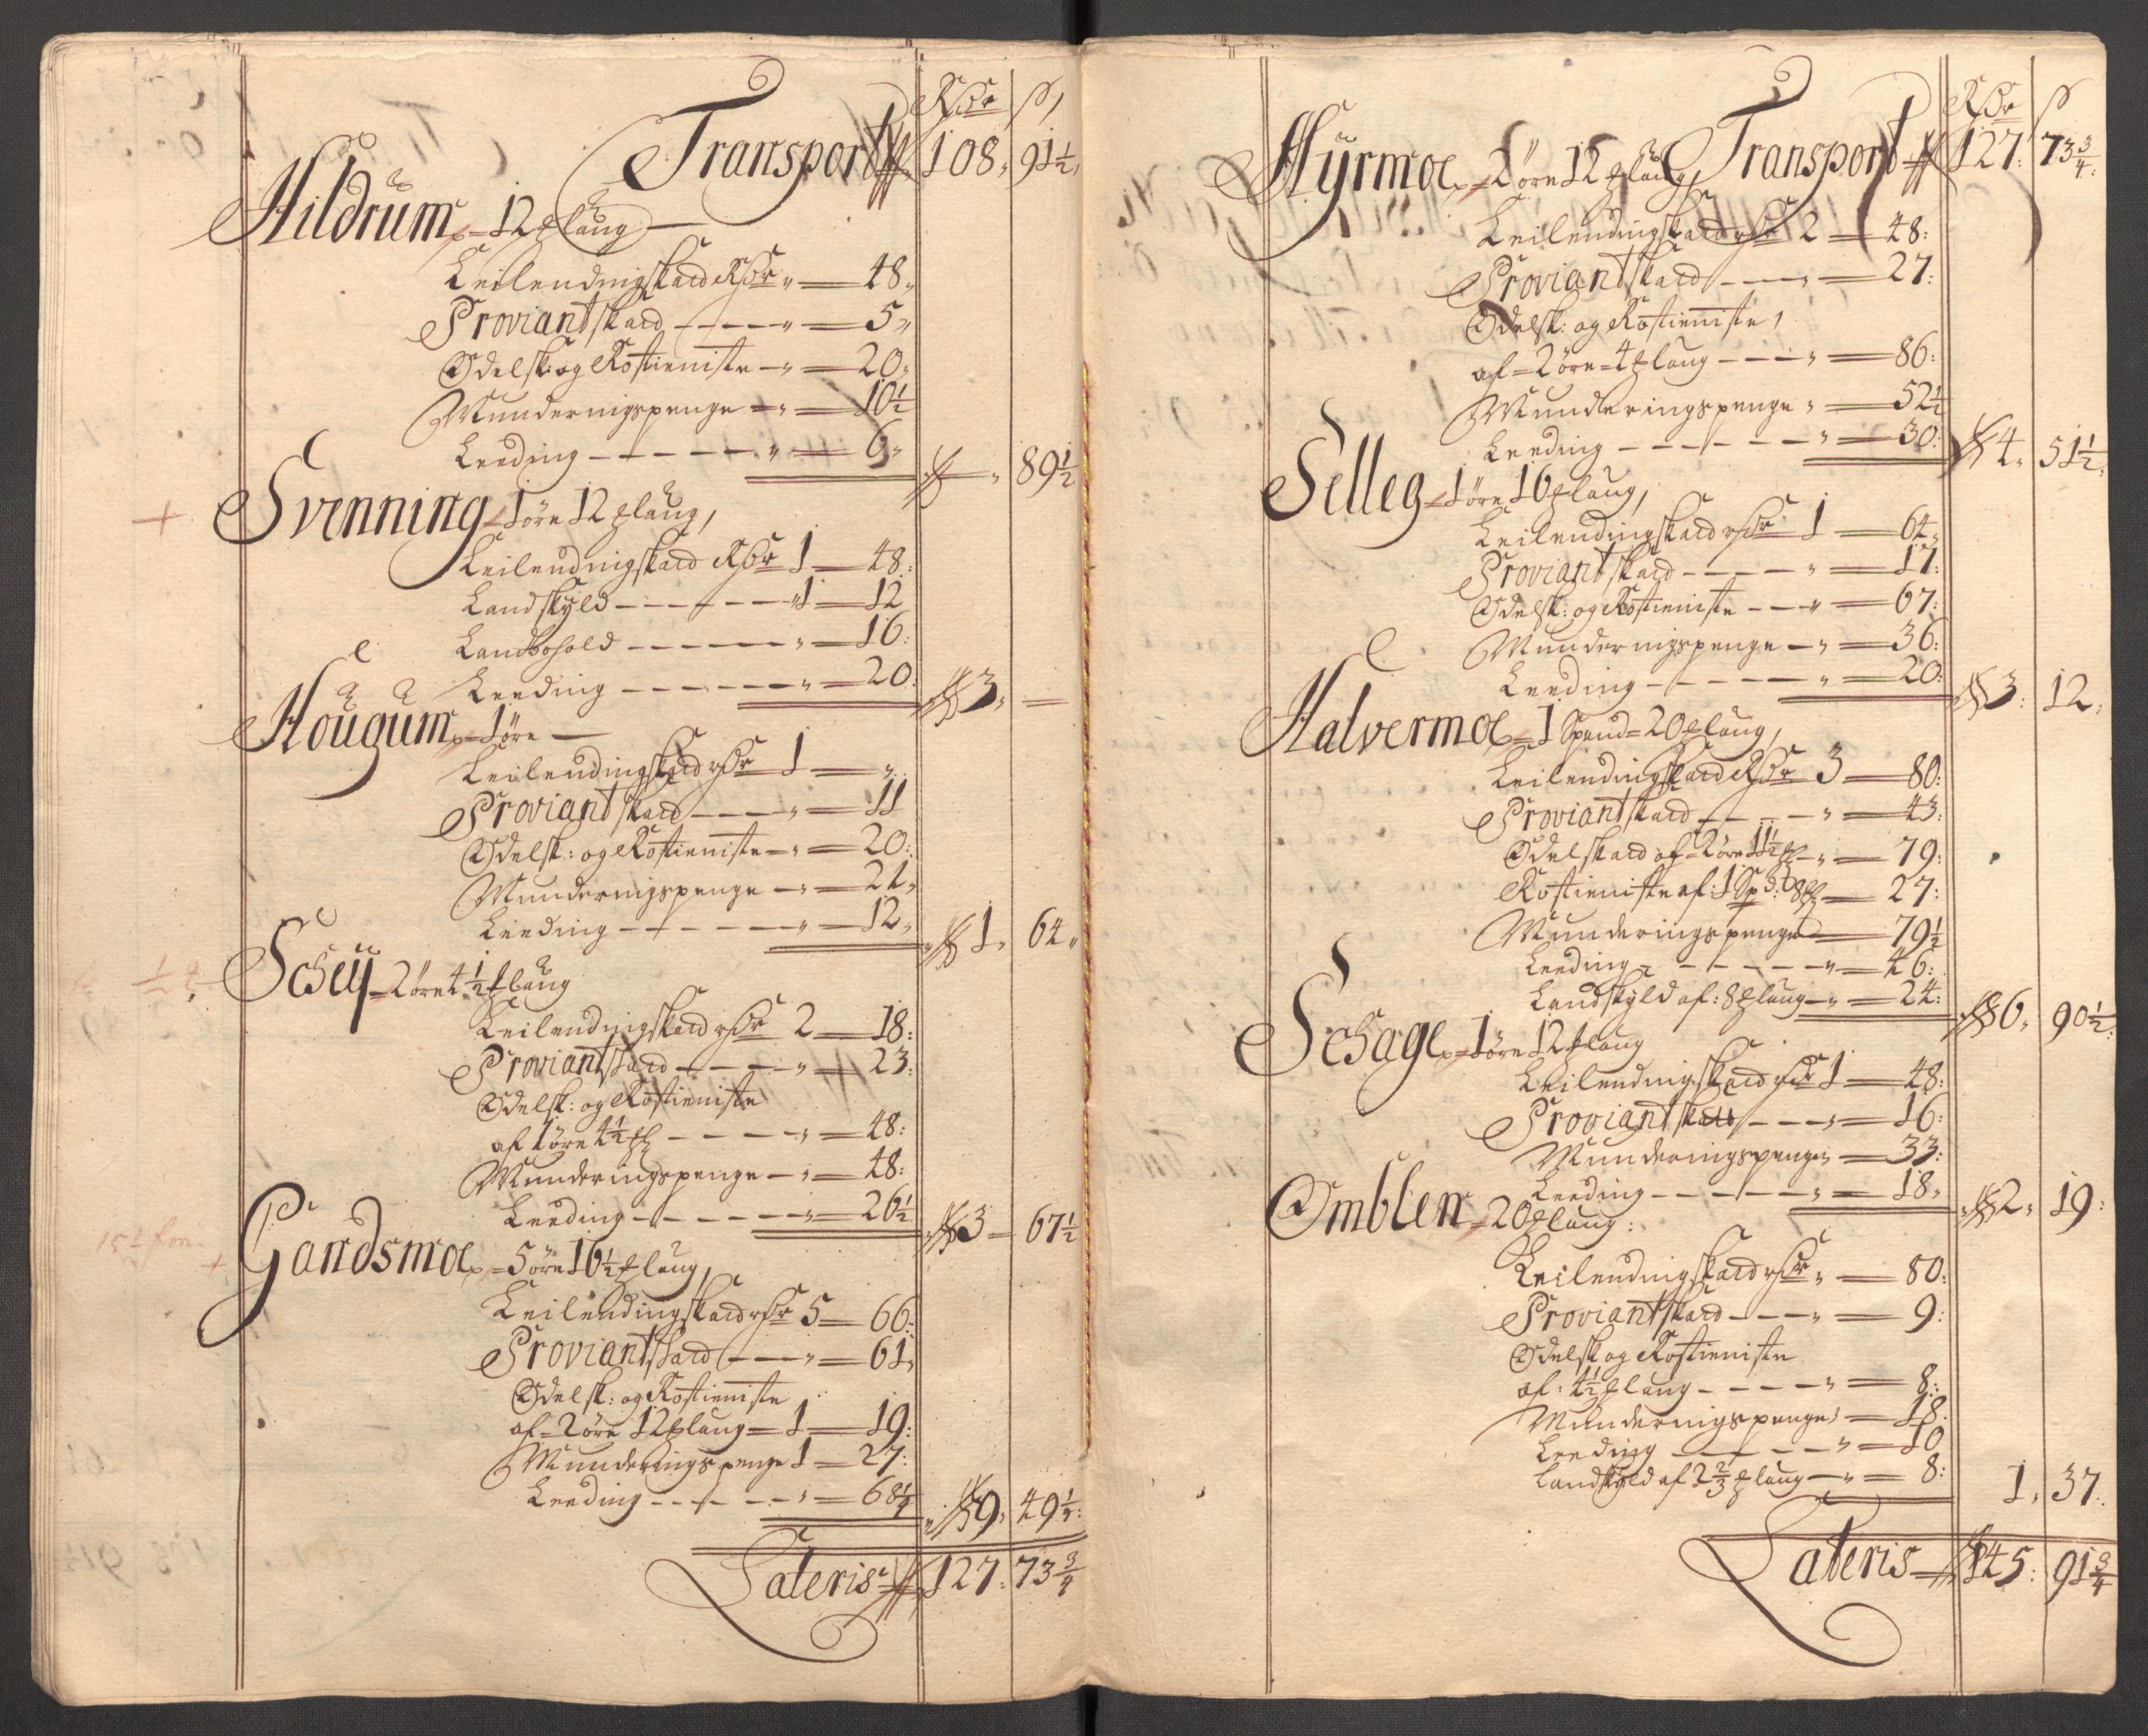 Rdr ß
Transport 108 91½
Hildrum 12 laug
Leilendingskatt Rdr 48
Proviantskatt 5
Odelsk: og Rostieniste 20
Munderingspenge 10½
Leeding 6 89½
Svenning 1 öre 12 laug
Leilendingskatt Rdr 1 48
Landskyld 1 12
Landbohold 16
Leeding 20 3
Hougum 1 öre
Leilendingskatt Rdr 1
Proviantskatt 11
Odelsk: og Rostieniste 20
Munderingspenge 21
Leeding 12 1 64
Schey 2 öre 4½ laug
Leilendingskatt Rdr 2 18
Proviantskatt 23
Odelsk: og Rostieniste
af 1 öre 4½ 48
Munderingspenge 48
Leeding 26½ 3 67½
Gandsmoe 5 öre 16½ laug
Leilendingskatt Rdr 5 66
Proviantskatt 61
Odelsk: og Rostieniste
af 2 öre 12 laug 1 19
Munderingspenge 1 27
Leeding 68¼ 9 49¼
Lateris 127 73¾
Rdr ß
Hyrmoe 2 öre 12 laug Transport 127 73¾
Leilendingskatt Rdr 2 48
Proviantskatt 27
Odelsk: og Rostieniste
af 2 öre 4 laug 86
Munderingspenge 52½
Leeding 30 4 51½
Selleg 1 öre 16 laug
Leilendingskatt Rdr 1 64
Proviantskatt 17
Odelsk: og Rostieniste 67
Munderingspenge 36
Leeding 20 3 12
Halvermoe 1 Spand 20 laug
Leilendingskatt Rdr 3 80
Proviantskatt 43
Odelskatt af 2 öre 11½ 79
Rostieniste af 1 Spd: 8 27
Munderingspenge 79½
Leeding 46
Landskyld af: 8 laug 24 6 90½
Schage 1 öre 12 laug
Leilendingskatt Rdr 1 48
Proviantskatt 16
Munderingspenge 33
Leeding 18 2 19
Omblen 20 laug
Leilendingskatt Rdr 80
Proviantskatt 9
Odelsk og Rostieniste
af: 4½ laug 8
Munderingspenge 18
Leeding 10
Landskyld af 2⅔ laug 8 1 37
Lateris 145 91¾